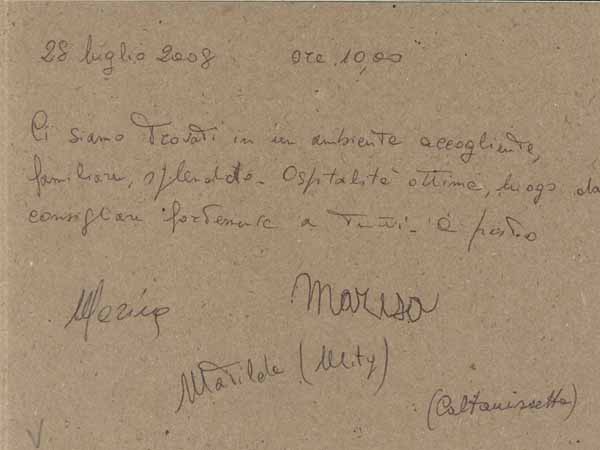 28 luglio 2008 ore 10,00
Ci siamo trovati in un ambiente accogliente,
familiare, splendido. Ospitalità ottima, luogo da
consigliare fortemente a tutti. A presto
Marisa
Matilde (Mity)
(Caltanissetta)